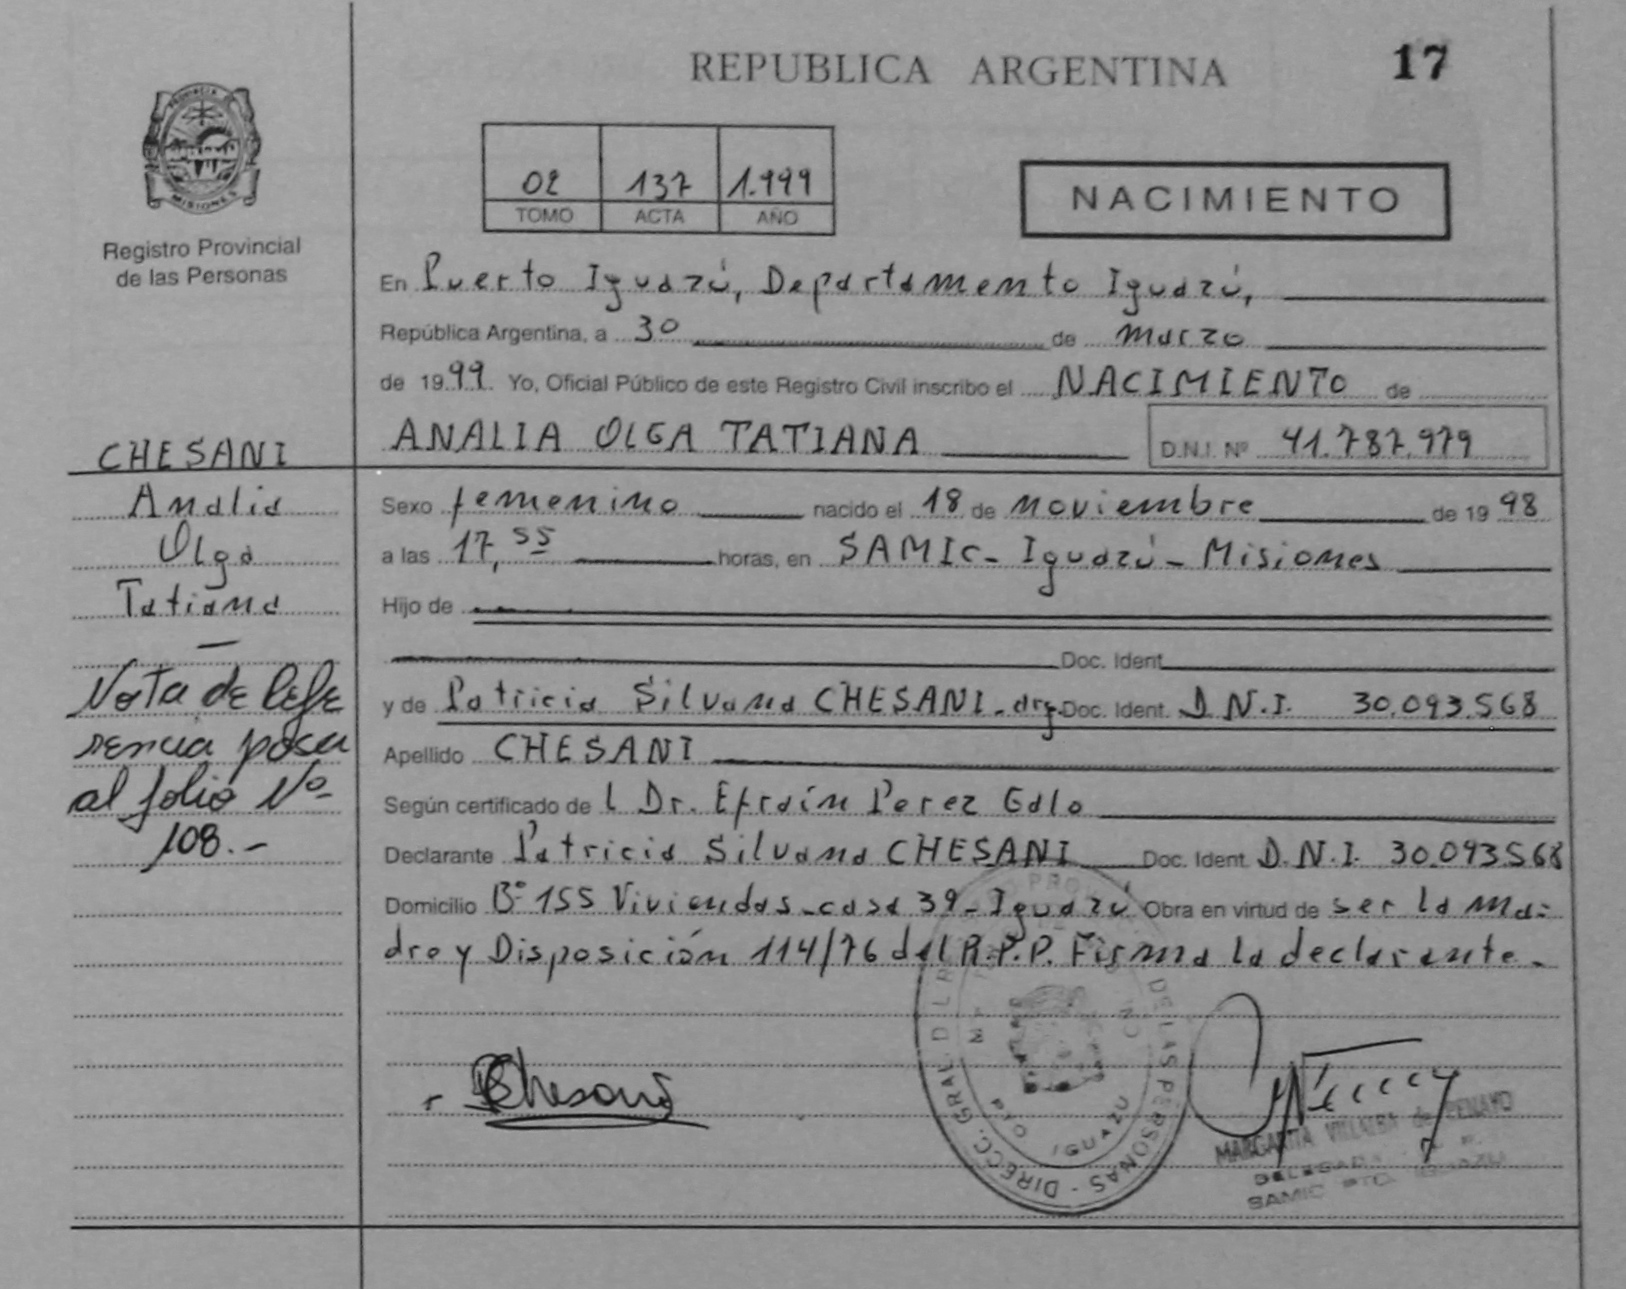 REPUBLICA ARGENTINA
17
PROVINCIA DE
MISIONES
Registro Provincial
de las Personas
02 137 1.999
TOMO ACTA AÑO
NACIMIENTO
En Puerto Iguazú, Departamento Iguazú,
República Argentina, a 30 de marzo
de 1999. Yo, Oficial Público de este Registro Civil inscribo el NACIMIENTO de
ANALIA OLGA TATIANA D.N.I. Nº 41.787.979
CHESANI
Analia
Olga
Tatiana
Nota de Refe
rencia pasa
al folio Nº
108.-
Sexo femenino nacido el 18 de noviembre de 1998
a las 17,55 horas, en SAMIC- Iguazú- Misiones
Hijo de
Doc. Ident.
y de Patricia Silvana CHESANI-arg. Doc. Ident. D.N.I. 30.093.568
Apellido CHESANI
Según certificado de l Dr. Efraín Perez Galo
Declarante Patricia Silvana CHESANI Doc. Ident. D.N.I. 30.093.568
Domicilio Bº 155 Viviendas-casa 39-Iguazú Obra en virtud de ser la ma-
dre y Disposición 114/76 del R.P.P. Firma la declarante.
Chesani
DIRECC. GRAL. DEL R PROV. DE LAS PERSONAS
IGUAZU
MARGARITA VILLALBA de PENAYO
DELEGADA
SAMIC PTO. IGUAZU